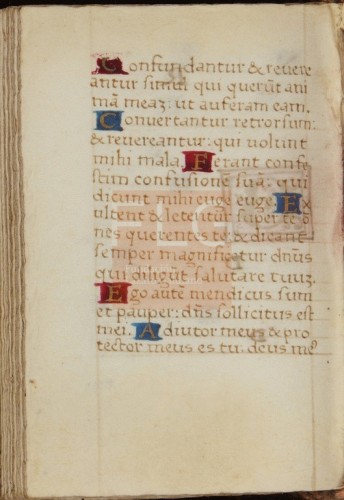 Confundantur & revere
antur simul qui querūt ani
mā meaz: ut auferam eam.
Convertantur retrorsum:
& revereantur: qui volunt
mihi mala. Ferant confe
stim confusionē suā: qui
dicunt mihi euge euge. Ex
ultent & letentur super te o
nes querentes te: & dicant
semper magnificetur dn̄us
qui diligūt salutare tuuz.
Ego autē mendicus sum
et pauper: dn̄s sollicitus est
mei. Adiutor meus & pro
tector meus es tu: deus me⁹